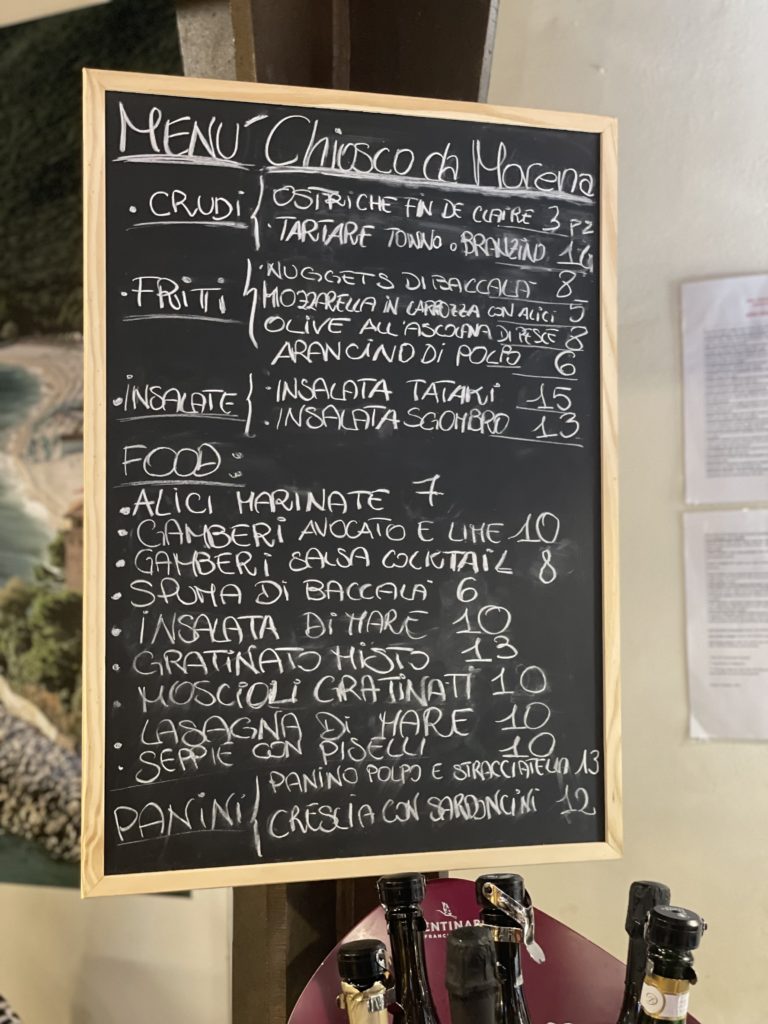 MENÚ Chiosco da Morena
• CRUDI { OSTRICHE FIN DE CLAIRE 3 PZ
• TARTARE TONNO o BRANZINO 14
• FRITTI { • NUGGETS DI BACCALÀ 8
MOZZARELLA IN CARROZZA CON ALICI 5
OLIVE ALL'ASCOLANA DI PESCE 8
ARANCINO DI POLPO 6
• INSALATE { • INSALATA TATAKI 15
• INSALATA SGOMBRO 13
FOOD:
• ALICI MARINATE 7
• GAMBERI AVOCATO E LIME 10
• GAMBERI SALSA COCKTAIL 8
• SPUMA DI BACCALÀ 6
• INSALATA DI MARE 10
• GRATINATO MISTO 13
• MOSCIOLI GRATINATI 10
• LASAGNA DI MARE 10
• SEPPIE CON PISELLI 10
PANINI { PANINO POLPO E STRACCIATELLA 13
CRESCIA CON SARDONCINI 12